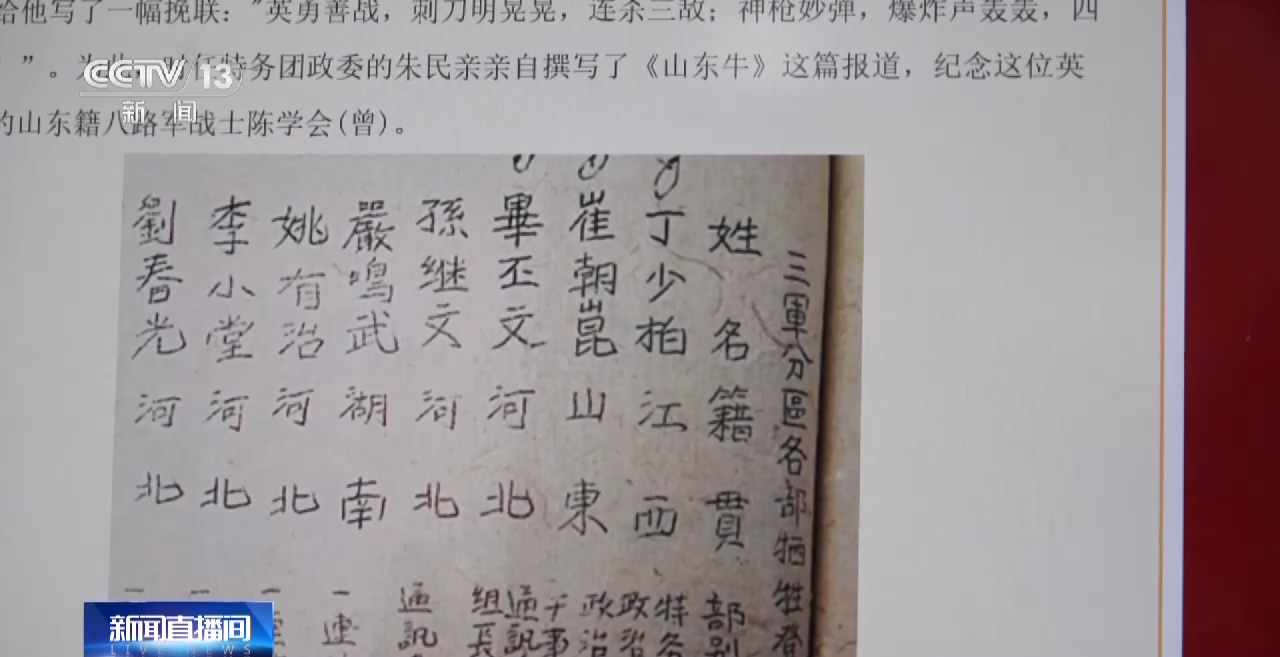 给他写了一幅挽联："英勇善战，刺刀明晃晃，连杀三敌；神枪妙弹，爆炸声轰轰，四
"。为 任特务团政委的朱民亲亲自撰写了《山东牛》这篇报道，纪念这位英
的山东籍八路军战士陈学会(曾)。
CCTV 13
新闻
三軍分區各部牺牲
姓名籍貫部别
丁少柏江西特务
政治
崔朝崑山東政治
干事
畢丕文河北通訊
组長
孫继文河北通訊
嚴鳴武湖南一連
姚有治河北一
李小堂河北一
劉春光河北一
新闻直播间
LIVE NEWS